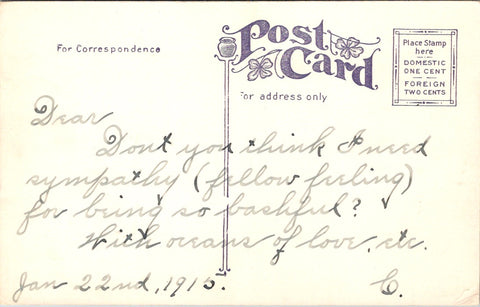 For Correspondence
Post Card
For address only
Place Stamp
here
DOMESTIC
ONE CENT
FOREIGN
TWO CENTS
Dear
Don't you think I need
sympathy (fellow feeling)
for being so bashful?
With oceans of love, etc.
Jan 22nd, 1915.
C.